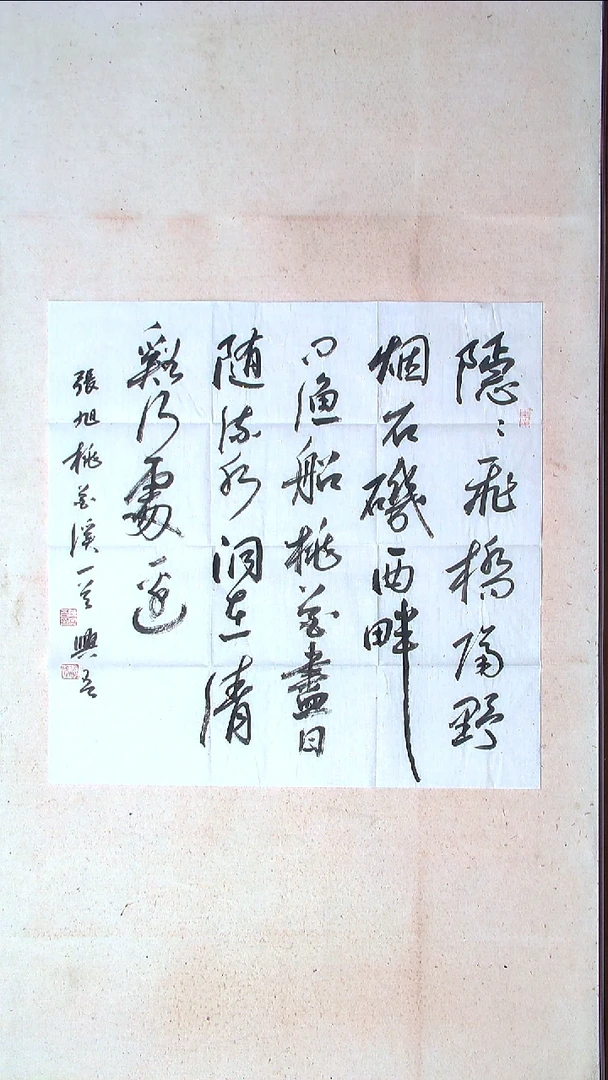 隱〻飛橋隔野
烟石磯西畔
问漁船桃花盡日
随流水洞在清
谿何處邊
張旭桃花溪一首 興吾